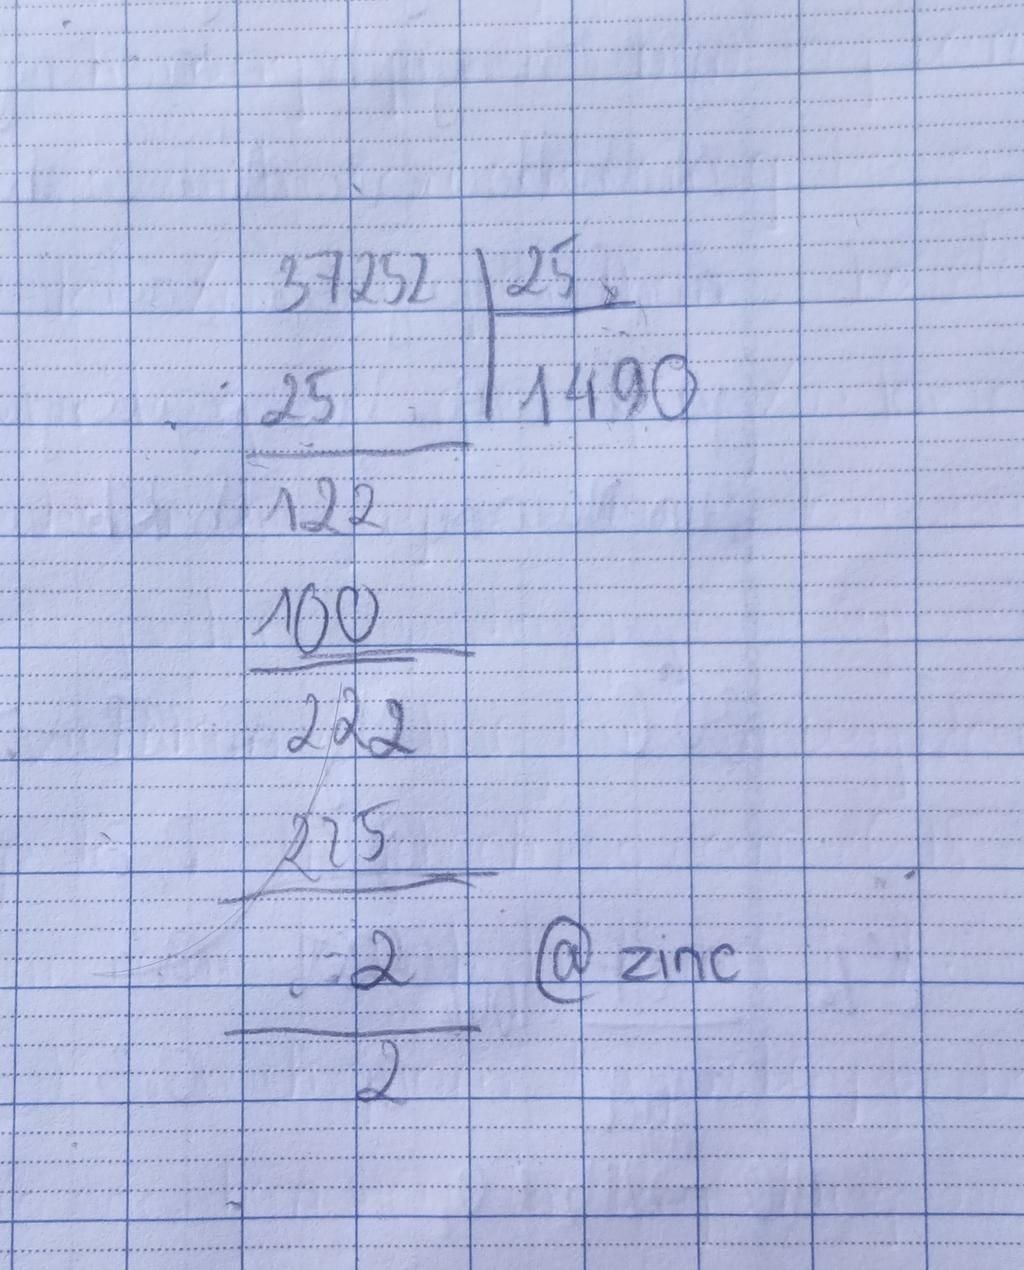 37252 25
25 1490
122
100
222
225
2 @zinc
2